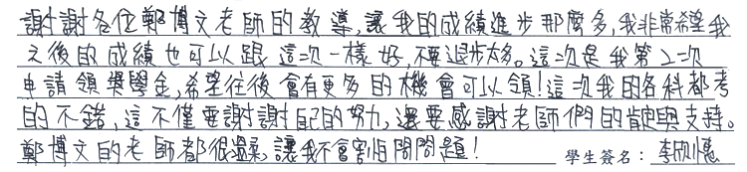 謝謝各位鄭博文老師的教導,讓我的成績進步那麼多,我非常希望我
之後的成績也可以跟這次一樣好,不要退步太多。這次是我第二次
申請領獎學金,希望往後會有更多的機會可以領!這次我的各科都考
的不錯,這不僅要謝謝自己的努力,還要感謝老師們的肯定與支持。
鄭博文的老師都很溫柔,讓我不會害怕問問題! 學生簽名:李欣